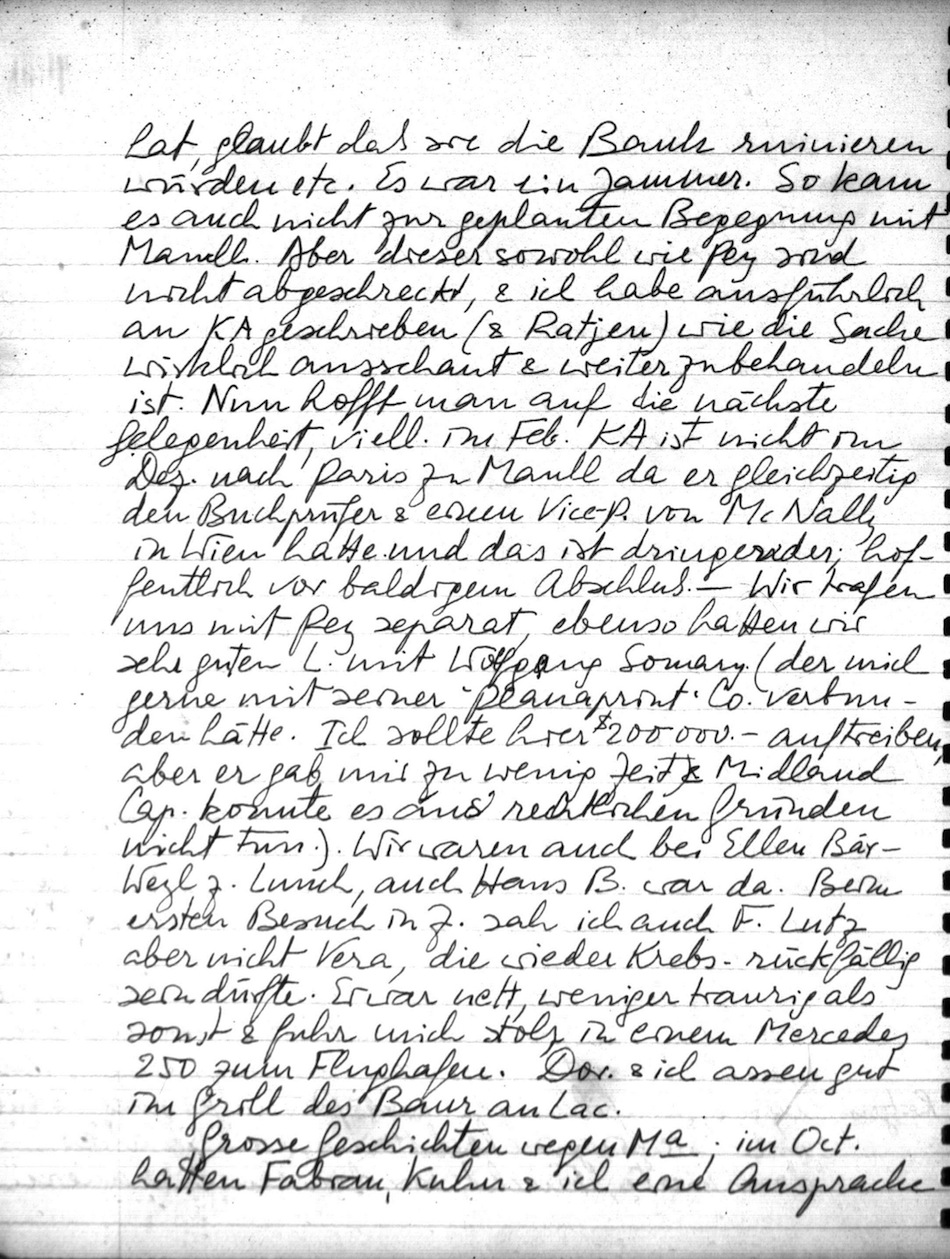 hat, glaubt daß sie die Bank ruinieren
würden etc. Es war ein Jammer. So kam
es auch nicht zur geplanten Begegnung mit
Mandl. Aber dieser sowohl wie Pey sind
nicht abgeschreckt, & ich habe ausführlich
an KA geschrieben (& Ratjen) wie die Sache
wirklich ausschaut & weiter zu behandeln
ist. Nun hofft man auf die nächste
Gelegenheit, viell. im Feb. KA ist nicht im
Dez. nach Paris zu Mandl da er gleichzeitig
den Buchprüfer & einen Vice-P. von McNally
in Wien hatte und das ist dringender; hof-
fentlich vor baldigem Abschluß. — Wir trafen
uns mit Pey separat, ebenso hatten wir
sehr guten L. mit Wolfgang Somary (der mich
gerne mit seiner "Planaprint" Co. verbun-
den hätte. Ich sollte hier $200000.- auftreiben,
aber er gab mir zu wenig Zeit & Midland
Cap. konnte es aus rechtlichen Gründen
nicht tun.). Wir waren auch bei Ellen Bär-
Wegl z. Lunch, auch Hans B. war da. Beim
ersten Besuch in Z. sah ich auch F. Lutz
aber nicht Vera, die wieder Krebs-rückfällig
sein dürfte. Er war nett, weniger traurig als
sonst & fuhr mich stolz in einem Mercedes
250 zum Flughafen. Dor. & ich assen gut
im Grill des Baur au Lac.
Grosse Geschichten wegen Ma; im Oct.
hatten Fabian, Kuhn & ich eine Aussprache